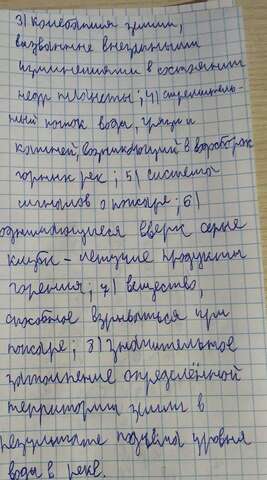 3) Колебания земли,
вызванные внезапными
изменениями в состоянии
недр планеты; 4) стремитель-
ный поток воды, грязи и
камней, возникающий в
горных рек; 5) система
сигналов о пожаре; 6)
поднимающиеся вверх серые
клубы - летучие продукты
горения; 7) вещество,
способное взрываться при
пожаре; 8) значительное
затопление определённой
территории земли в
результате подъёма уровня
воды в реке.